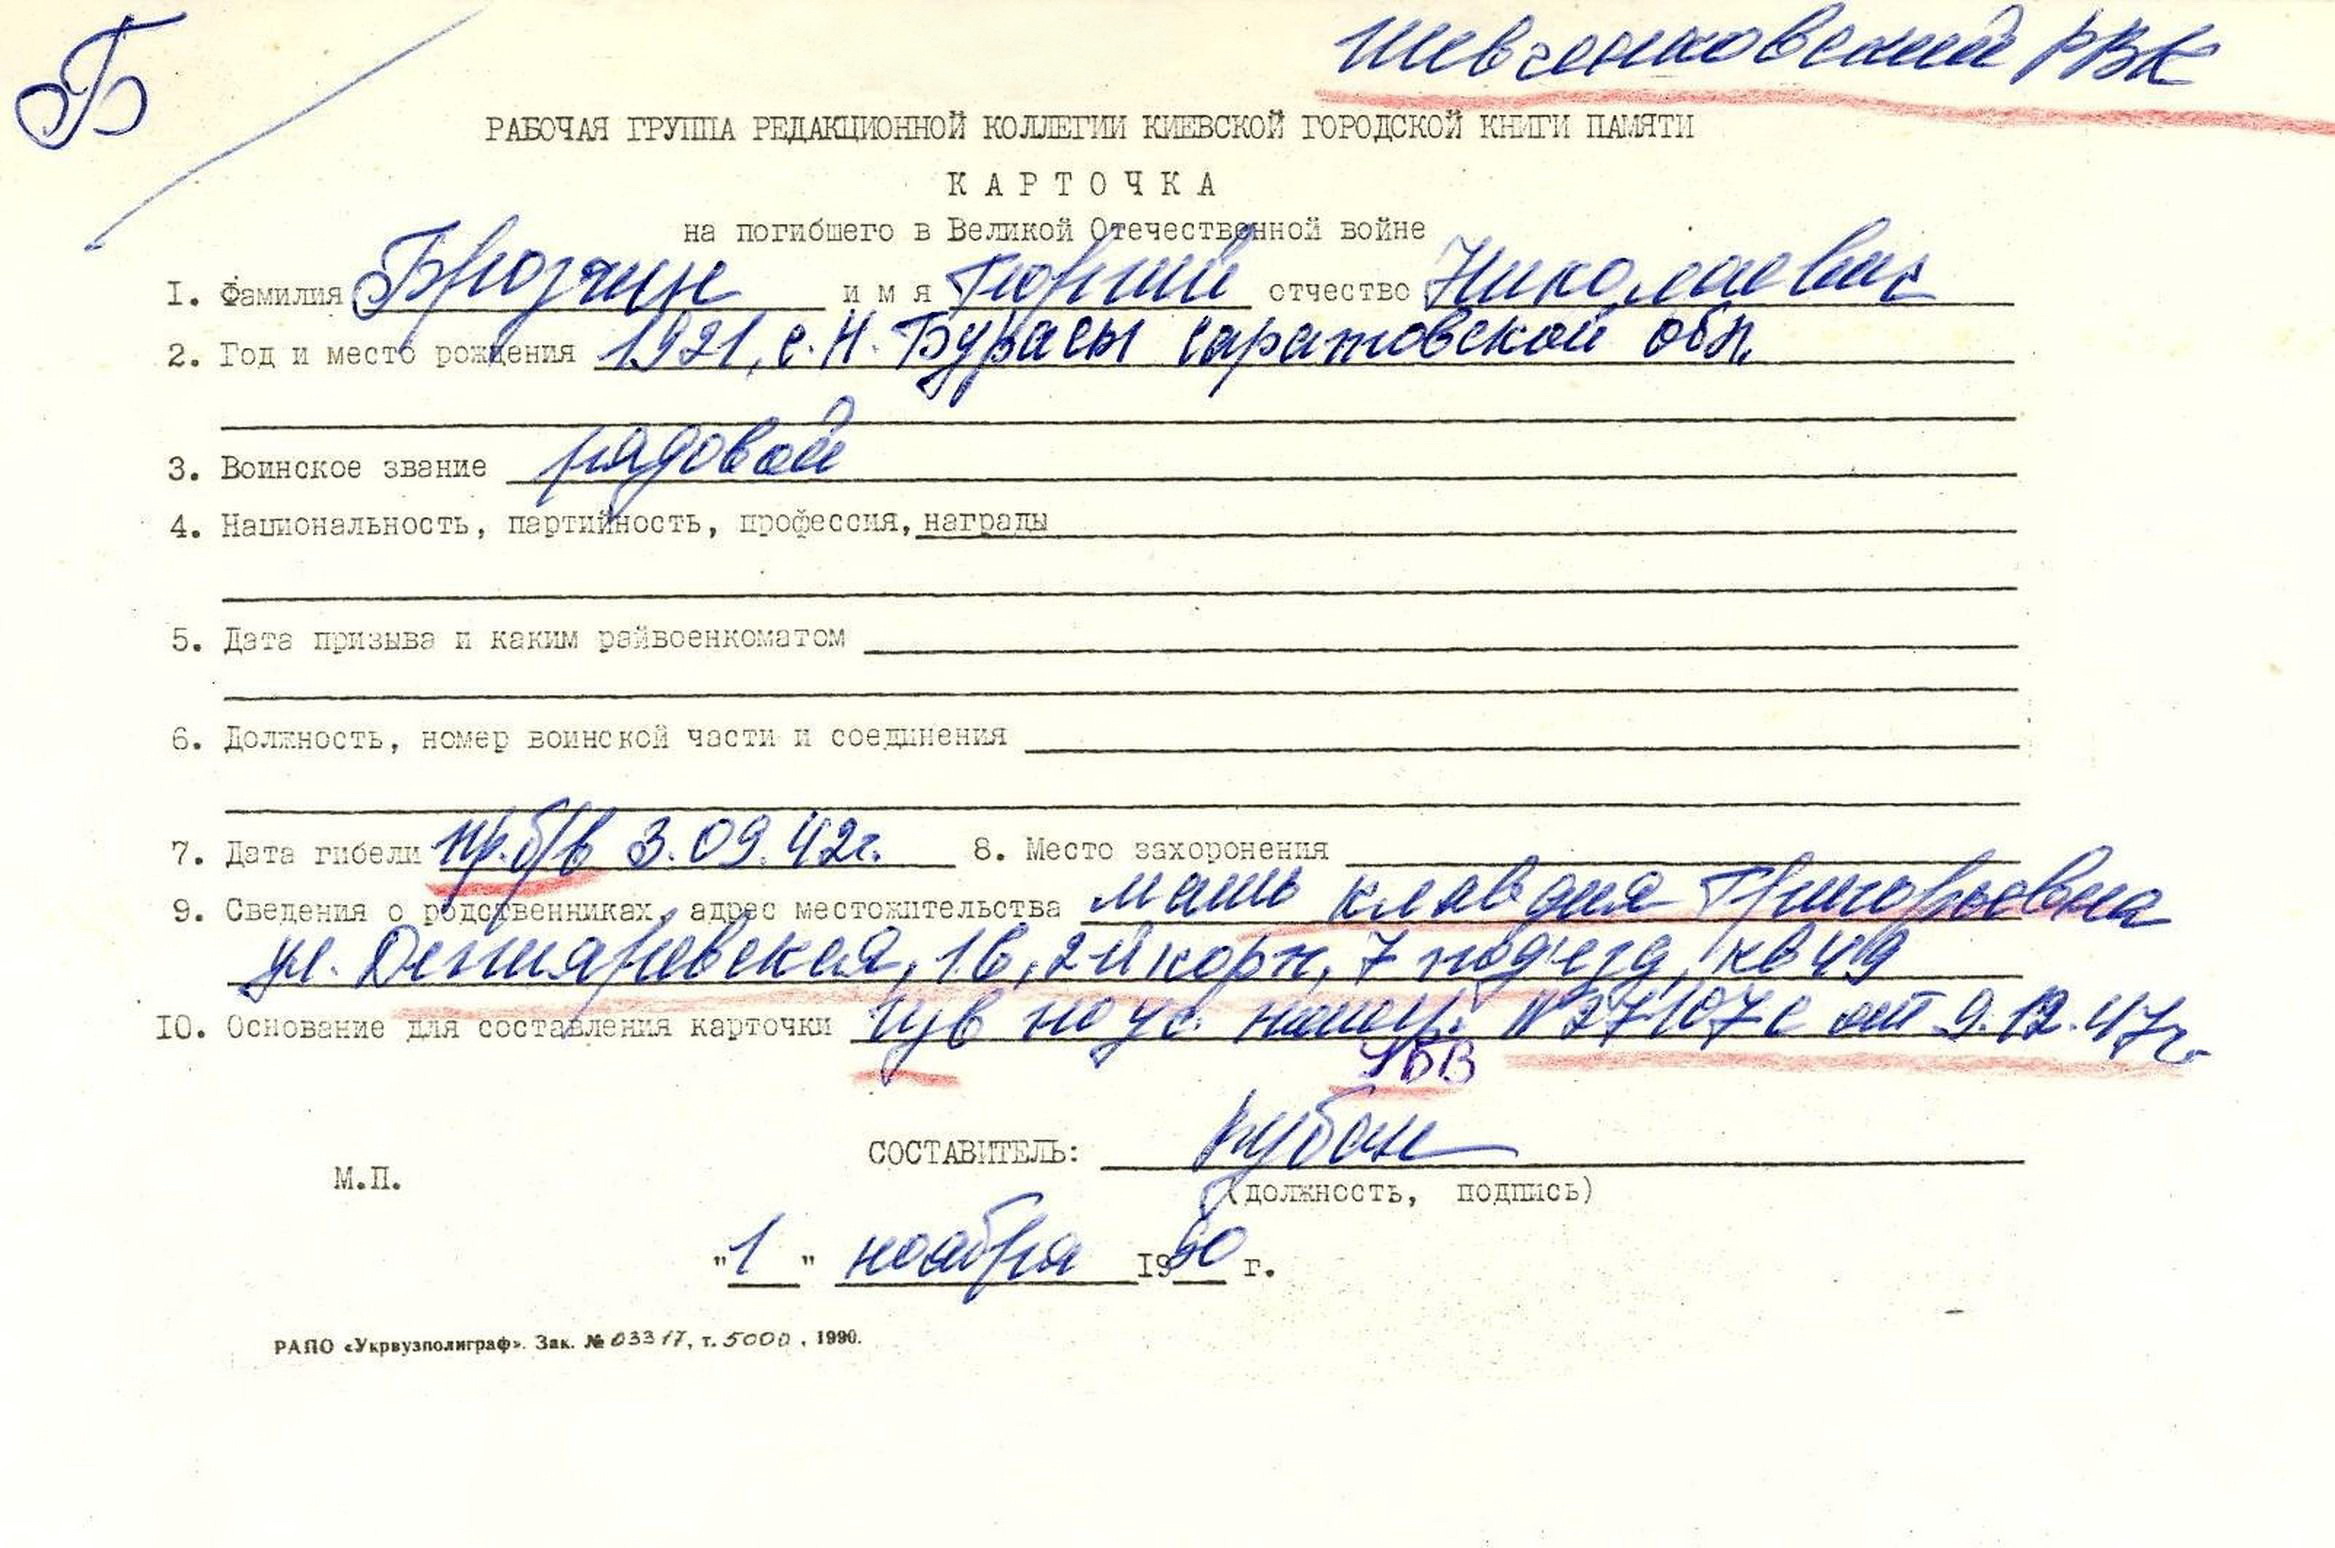 Б
Шевченковский РВК
РАБОЧАЯ ГРУППА РЕДАКЦИОННОЙ КОЛЛЕГИИ КИЕВСКОЙ ГОРОДСКОЙ КНИГИ ПАМЯТИ
КАРТОЧКА
на погибшего в Великой Отечественной войне
I. Фамилия имя отчество Николаевич
2. Год и место рождения 1921, с. Н. Бурасы саратовской обл.
3. Воинское звание рядовой
4. Национальность, партийность, профессия, награды
5. Дата призыва и каким райвоенкоматом
6. Должность, номер воинской части и соединения
7. Дата гибели пр. б/в 3.09.42г. 8. Место захоронения
9. Сведения о родственниках, адрес местожительства мать Клавдия Григорьевна
ул. Дегтяревская, 1б, 2й корп, 7 подъезд, кв 49
10. Основание для составления карточки от 9.12.47г.
УБВ
СОСТАВИТЕЛЬ:
М.П.
(должность, подпись)
"1" ноября 1990 г.
РАПО «Укрвузполиграф». Зак. № 03317, т. 5000, 1990.